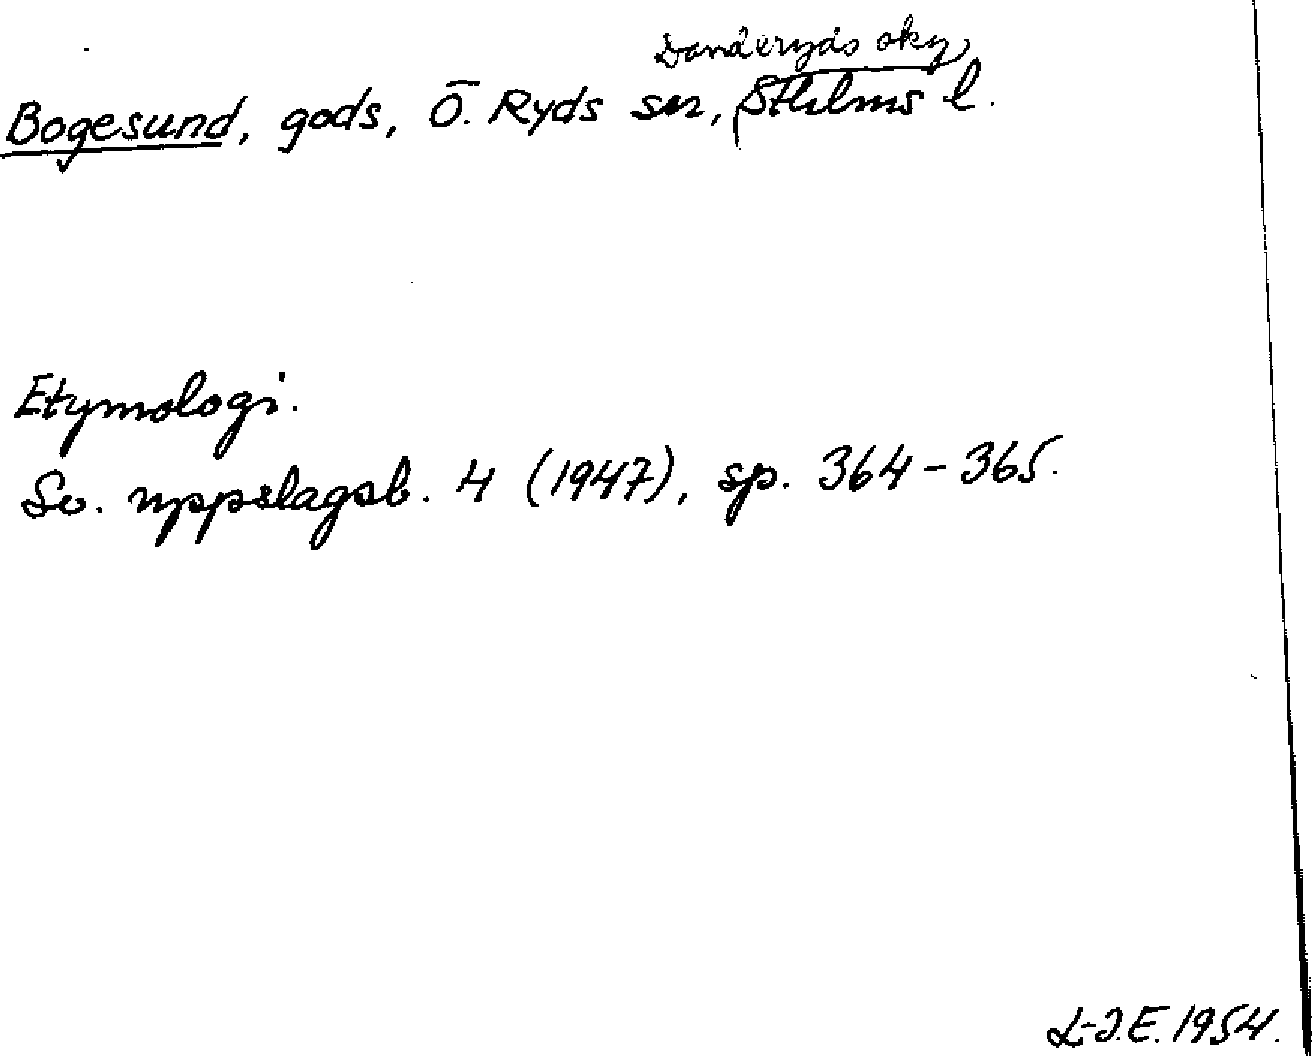 Danderyds skg
Bogesund, gods, Ö. Ryds sn, Sthlms l.
Etymologi.
Sv. uppslagsb. 4 (1947), sp. 364-365.
L-I.E. 1954.